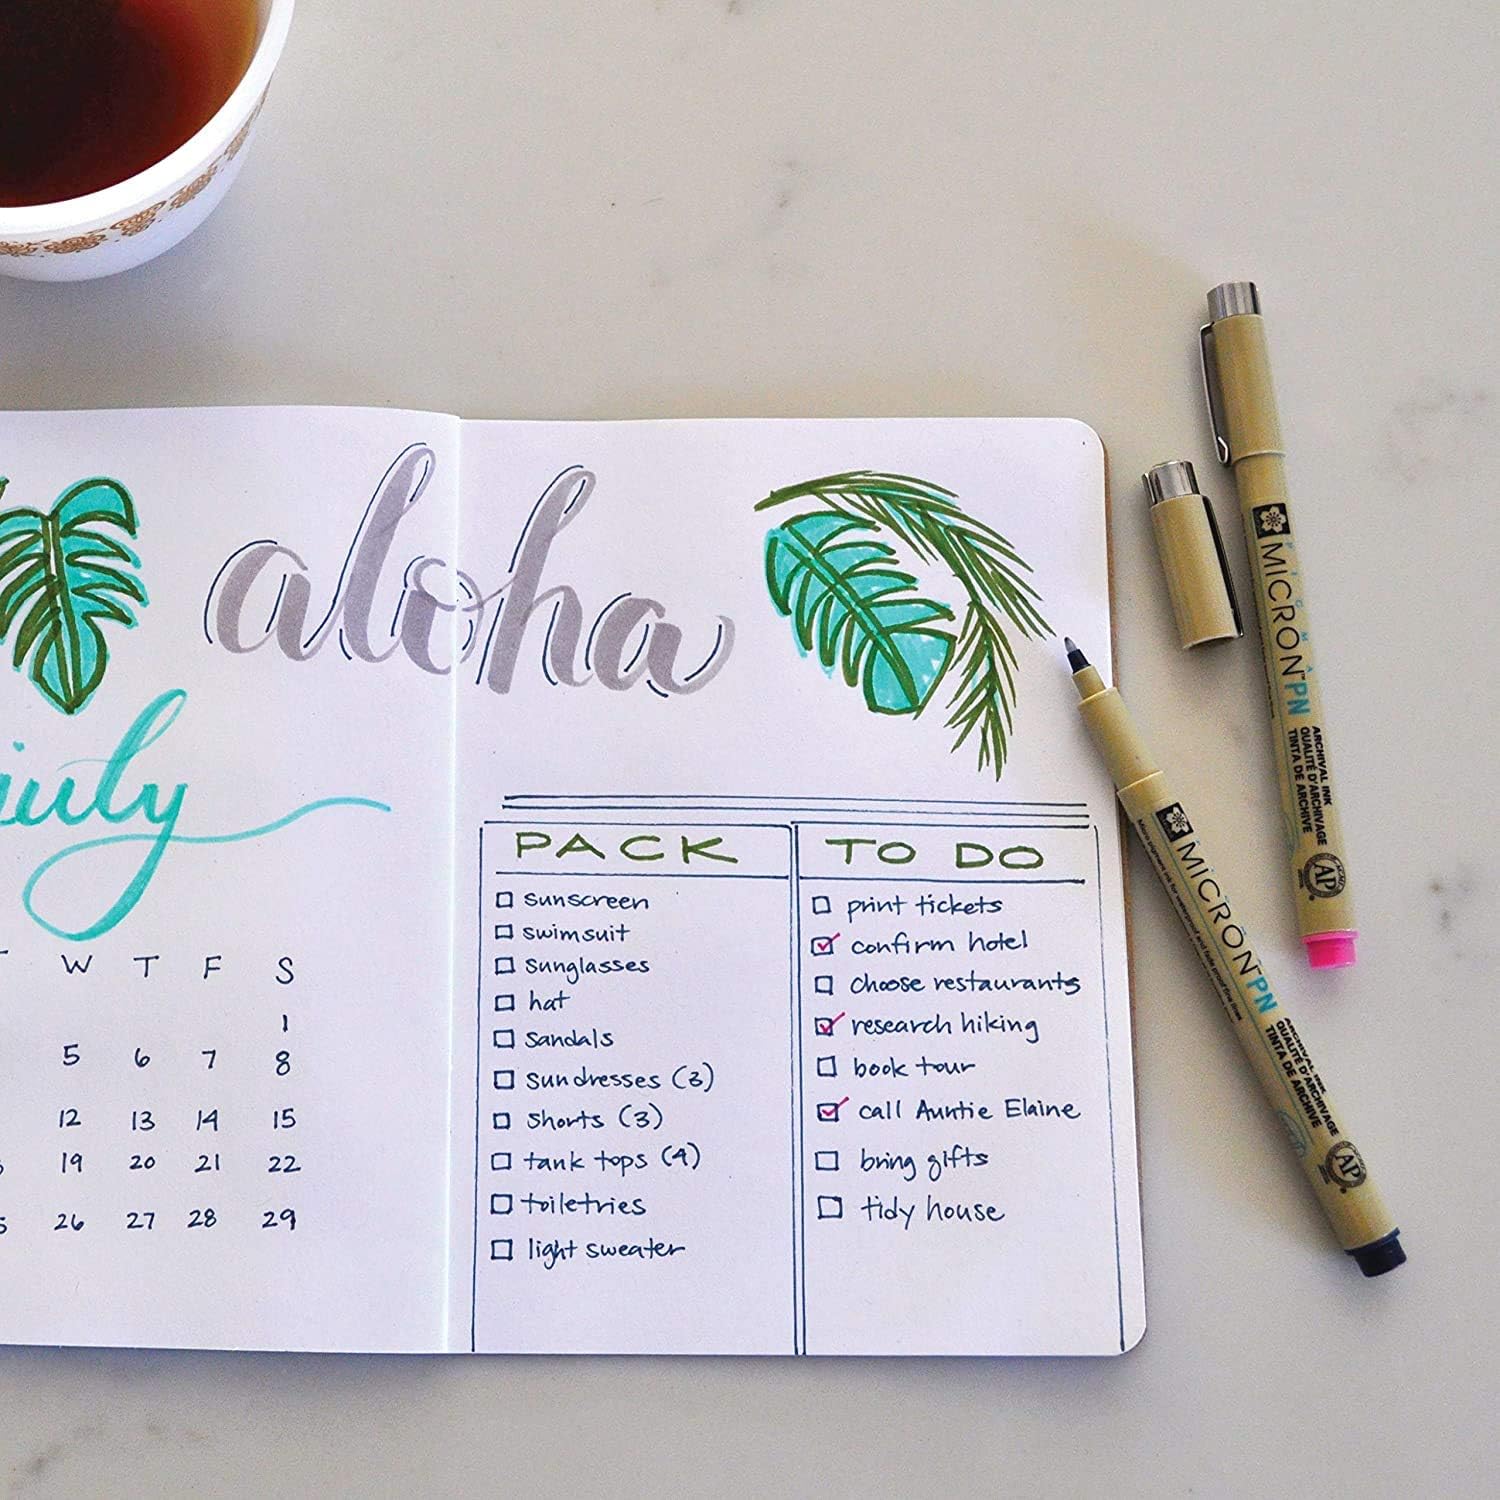 aloha
july
W T F S
1
5 6 7 8
12 13 14 15
19 20 21 22
26 27 28 29
PACK
sunscreen
swimsuit
sunglasses
hat
sandals
sundresses (3)
shorts (3)
tank tops (4)
toiletries
light sweater
TO DO
print tickets
confirm hotel
choose restaurants
research hiking
book tour
call Auntie Elaine
bring gifts
tidy house
PIGMA
MICRON™PN
ARCHIVAL INK
QUALITÉ D'ARCHIVAGE
TINTA DE ARCHIVE
AP
MICRON PN
Micro-pigment ink for waterproof and fade proof fine lines
ARCHIVAL INK
QUALITÉ D'ARCHIVAGE
TINTA DE ARCHIVE
AP